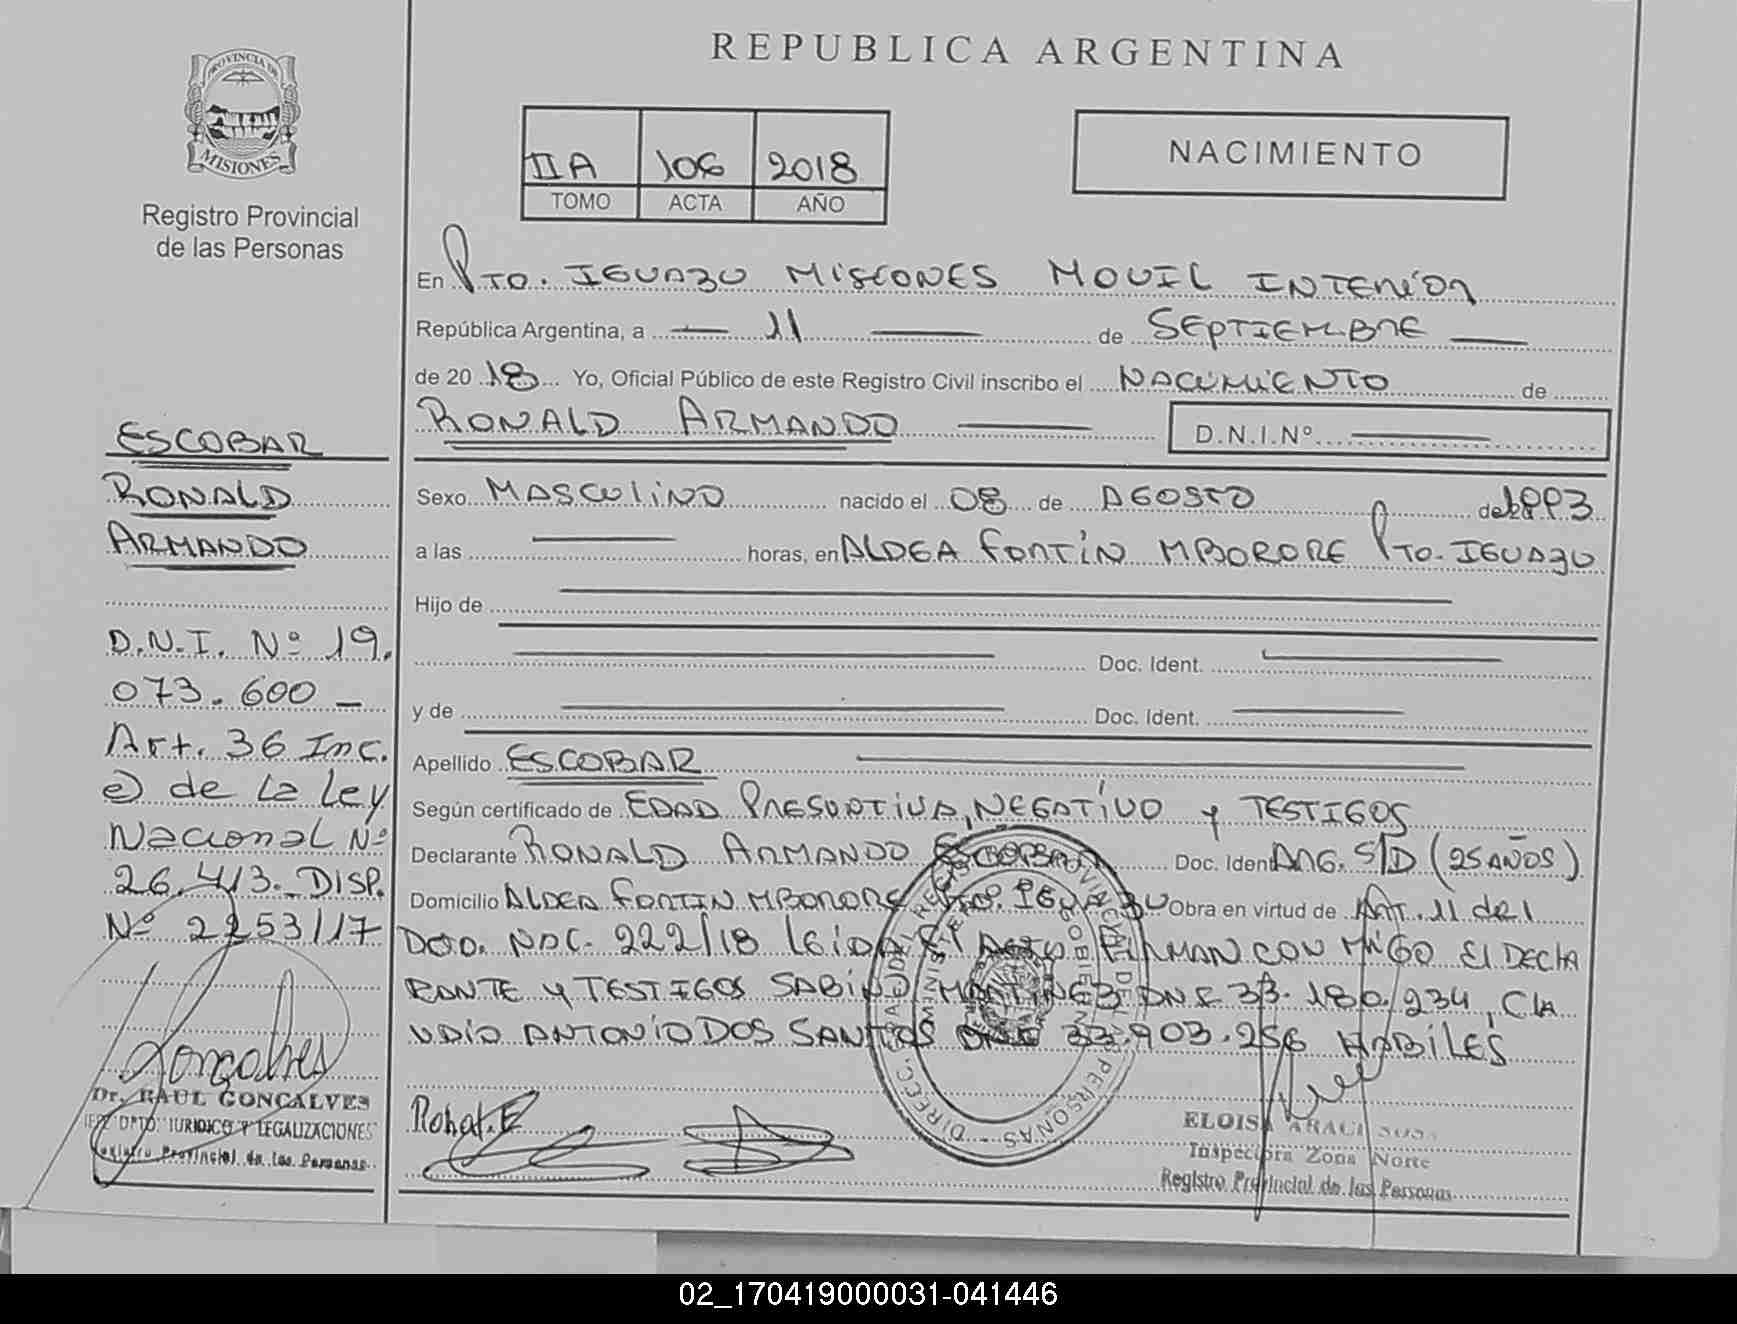 REPUBLICA ARGENTINA
PROVINCIA DE
MISIONES
Registro Provincial
de las Personas
IIA 106 2018
TOMO ACTA AÑO
NACIMIENTO
En Pto. IGUAZU MISIONES MOVIL INTERIOR
República Argentina, a — 11 — de SEPTIEMBRE —
de 20 18 Yo, Oficial Público de este Registro Civil inscribo el NACIMIENTO de
RONALD ARMANDO — D.N.I.Nº —
Sexo MASCULINO nacido el 08 de AGOSTO de 1993
a las — horas, en ALDEA FORTIN MBORORE Pto. IGUAZU
Hijo de —
— Doc. Ident. —
y de — Doc. Ident. —
Apellido ESCOBAR —
Según certificado de EDAD PRESUNTIVA, NEGATIVO y TESTIGOS
Declarante RONALD ARMANDO ESCOBAR Doc. Ident ARG. S/D (25 AÑOS)
Domicilio ALDEA FORTIN MBORORE Pto. IGUAZU Obra en virtud de Art. 11 del
DCO. NAC. 222/18 LEIDA EL ACTA FIRMAN CONMIGO El DECLA
RANTE y TESTIGOS SABINO MARTINEZ DNI 33.180.234, CLA
UDIO ANTONIO DOS SANTOS DNI 33.903.256 HABILES
Ronal. E
ELOISA ARACI SOSA
Inspectora Zona Norte
Registro Provincial de las Personas
ESCOBAR
RONALD
ARMANDO
D.N.I. Nº 19.
073.600 —
Art. 36 Inc.
e) de La Ley
Nacional Nº
26.413. DISP.
Nº 2253/17
Goncalves
Dr. RAUL GONCALVES
JEFE DPTO. JURIDICO Y LEGALIZACIONES
Registro Provincial de las Personas
02_170419000031-041446